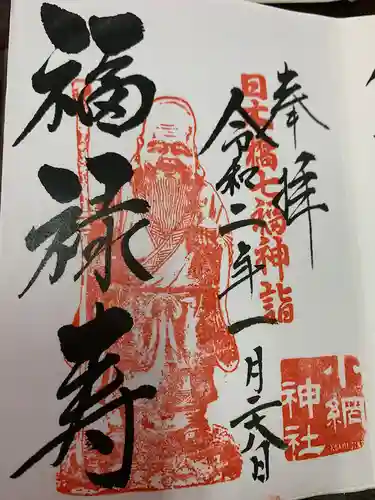 奉拝
日七福七福神詣
令和二年一月六日
福禄寿
小網
神社